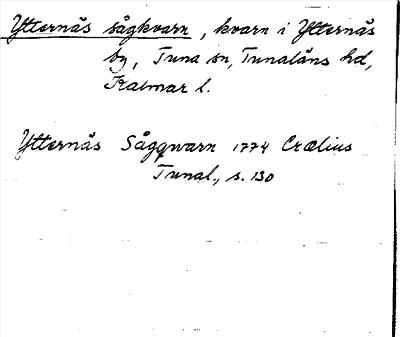 Ytternäs sågkvarn, kvarn i Ytternäs
by, Tuna sn, Tunaläns hd,
Kalmar l.
Ytternäs Sågqwarn 1774 Crælius
Tunal., s. 130